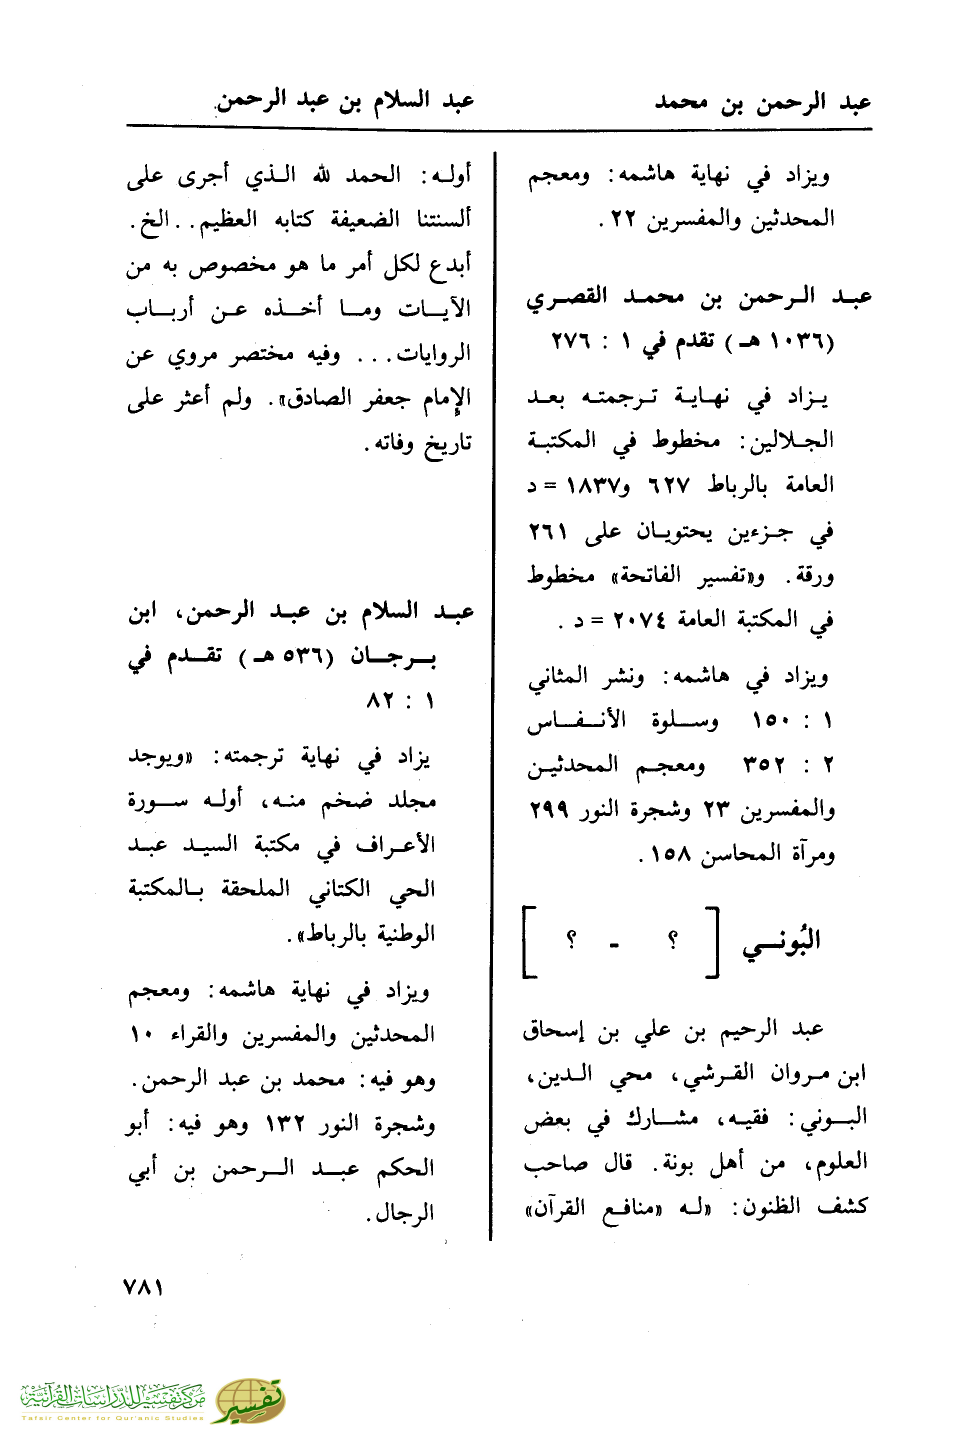 عبد الرحمن بن محمد
عبد السلام بن عبد الرحمن
ويزاد في نهاية هاشمه: ومعجم
المحدثين والمفسرين ٢٢.
عبد الرحمن بن محمد القصري
(١٠٣٦ هـ) تقدم في ١ : ٢٧٦
يزاد في نهاية ترجمته بعد
الجلالين: مخطوط في المكتبة
العامة بالرباط ٦٢٧ و١٨٣٧ = د
في جزءين يحتويان على ٢٦١
ورقة. و«تفسير الفاتحة» مخطوط
في المكتبة العامة ٢٠٧٤ = د .
ويزاد في هاشمه: ونشر المثاني
١ : ١٥٠ وسلوة الأنفاس
٢ : ٣٥٢ ومعجم المحدثين
والمفسرين ٢٣ وشجرة النور ٢٩٩
ومرآة المحاسن ١٥٨.
البُوني [ ؟ - ؟ ]
عبد الرحيم بن علي بن إسحاق
ابن مروان القرشي، محي الدين،
البوني: فقيه، مشارك في بعض
العلوم، من أهل بونة. قال صاحب
كشف الظنون: «له «منافع القرآن»
أوله: الحمد لله الذي أجرى على
ألسنتنا الضعيفة كتابه العظيم.. الخ.
أبدع لكل أمر ما هو مخصوص به من
الآيات وما أخذه عن أرباب
الروايات... وفيه مختصر مروي عن
الإمام جعفر الصادق». ولم أعثر على
تاريخ وفاته.
عبد السلام بن عبد الرحمن، ابن
برجان (٥٣٦ هـ) تقدم في
١ : ٨٢
يزاد في نهاية ترجمته: «ويوجد
مجلد ضخم منه، أوله سورة
الأعراف في مكتبة السيد عبد
الحي الكتاني الملحقة بالمكتبة
الوطنية بالرباط».
ويزاد في نهاية هاشمه: ومعجم
المحدثين والمفسرين والقراء ١٠
وهو فيه: محمد بن عبد الرحمن.
وشجرة النور ١٣٢ وهو فيه: أبو
الحكم عبد الرحمن بن أبي
الرجال.
٧٨١
مركز تفسير للدراسات القرآنية
Tafsir Center for Qur'anic Studies
تفسير